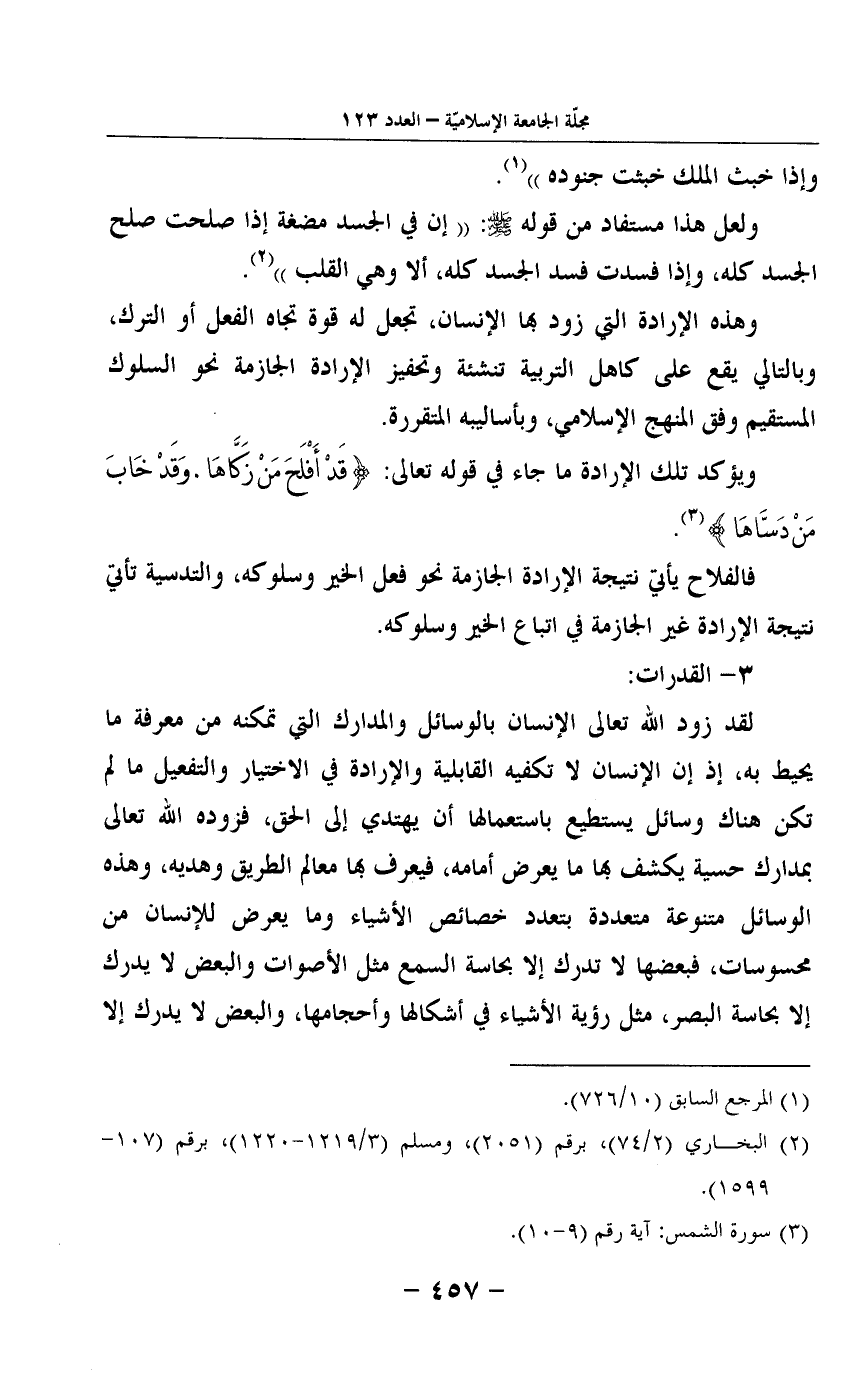 مجلّة الجامعة الإسلاميّة – العدد ١٢٣
وإذا خبث الملك خبثت جنوده ))(١).
ولعل هذا مستفاد من قوله ﷺ: (( إن في الجسد مضغة إذا صلحت صلح
الجسد كله، وإذا فسدت فسد الجسد كله، ألا وهي القلب ))(٢).
وهذه الإرادة التي زود بها الإنسان، تجعل له قوة تجاه الفعل أو الترك،
وبالتالي يقع على كاهل التربية تنشئة وتحفيز الإرادة الجازمة نحو السلوك
المستقيم وفق المنهج الإسلامي، وبأساليبه المتقررة.
ويؤكد تلك الإرادة ما جاء في قوله تعالى: ﴿ قَدْ أَفْلَحَ مَنْ زَكَّاهَا . وَقَدْ خَابَ
مَنْ دَسَّاهَا ﴾(٣).
فالفلاح يأتيّ نتيجة الإرادة الجازمة نحو فعل الخير وسلوكه، والتدسية تأتيّ
نتيجة الإرادة غير الجازمة في اتباع الخير وسلوكه.
٣– القدرات:
لقد زود الله تعالى الإنسان بالوسائل والمدارك التي تمكنه من معرفة ما
يحيط به، إذ إن الإنسان لا تكفيه القابلية والإرادة في الاختيار والتفعيل ما لم
تكن هناك وسائل يستطيع باستعمالها أن يهتدي إلى الحق، فزوده الله تعالى
بمدارك حسية يكشف بها ما يعرض أمامه، فيعرف بها معالم الطريق وهديه، وهذه
الوسائل متنوعة متعددة بتعدد خصائص الأشياء وما يعرض للإنسان من
محسوسات، فبعضها لا تدرك إلا بحاسة السمع مثل الأصوات والبعض لا يدرك
إلا بحاسة البصر، مثل رؤية الأشياء في أشكالها وأحجامها، والبعض لا يدرك إلا
(١) المرجع السابق (٧٢٦/١٠).
(٢) البخـــاري (٧٤/٢)، برقم (٢٠٥١)، ومسلم (١٢١٩/٣-١٢٢٠)، برقم (١٠٧-
١٥٩٩).
(٣) سورة الشمس: آية رقم (٩-١٠).
– ٤٥٧ –